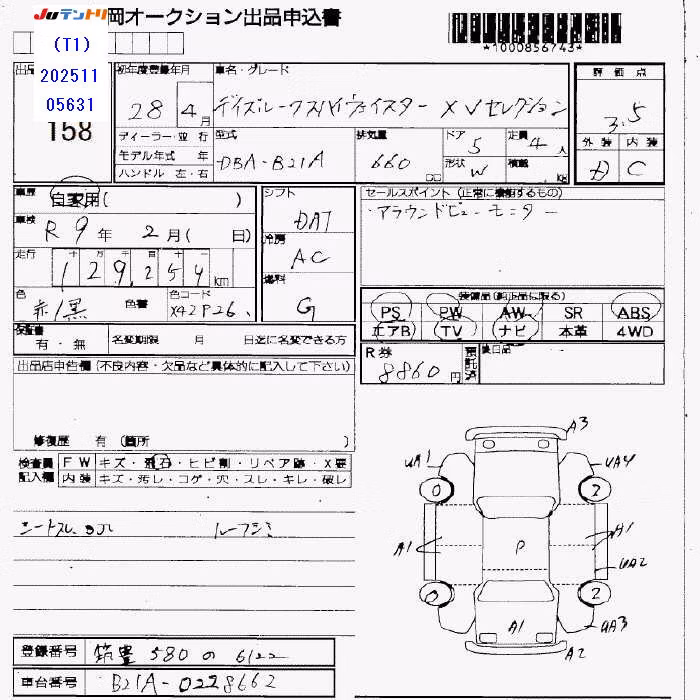 Juテントリ 岡オークション出品申込書
(T1)
202511
05631
*1000856743*
出品
158
初年度登録年月
28 年 4 月
車名・グレード
デイズルークスハイウェイスター X Vセレクション
評価点
3.5
外装 内装
D C
ディーラー・並行
モデル年式 年
ハンドル 左・右
型式
DBA-B21A
排気量
660 cc
ドア
5
形状
W
定員
4 人
積載
kg
車歴
自家用( )
車検
R 9 年 2 月 ( 日)
走行
129,254 km
色
赤/黒
色替
色コード
X42P26
シフト
DAT
冷房
AC
燃料
G
セールスポイント (正常に機能するもの)
・アラウンドビューモニター
装備品(純正品に限る)
PS PW AW SR ABS
エアB TV ナビ 本革 4WD
検査書
有・無
名変期限 月 日迄に名変できる方
R券
8860 円
預託済
後日品
出品店申告欄 (不良内容・欠品など具体的に記入して下さい)
修復歴 有 (箇所 )
検査員記入欄
FW キズ・飛石・ヒビ割・リペア跡・X要
内装 キズ・汚レ・コゲ・穴・スレ・キレ・破レ
ルーフシミ
A3
UA1
UA4
0
2
A1
P
A1
UA2
0
2
A1
UA3
A2
登録番号 筑豊 580 の 6122
車台番号 B21A-0228662